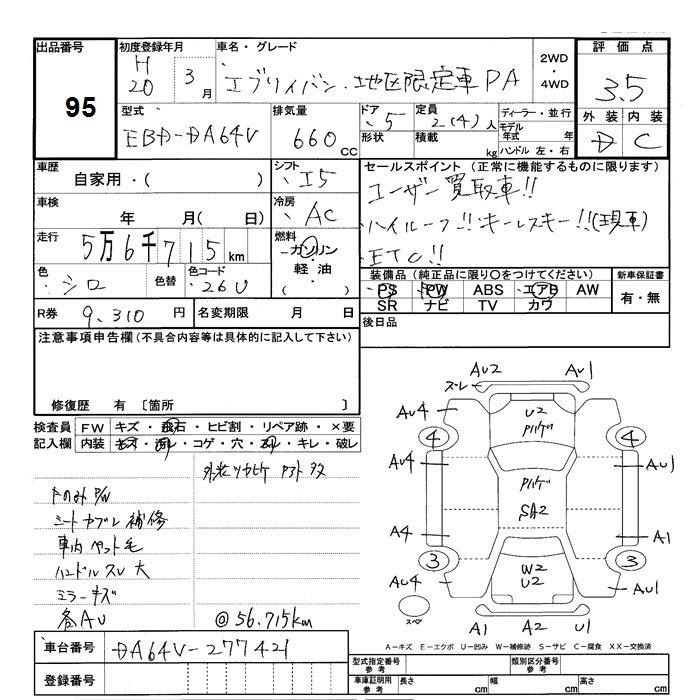 出品番号
95
初度登録年月
H
20 3月
車名・グレード
エブリィバン・地区限定車 PA
2WD
・
4WD
評価点
3.5
外装 内装
D C
型式
EBD-DA64V
排気量
660 cc
ドア
5
形状
定員
2(4)人
積載
kg
ディーラー・並行
モデル年式 年
ハンドル 左・右
車歴
自家用・( )
シフト
I5
セールスポイント(正常に機能するものに限ります)
ユーザー買取車!!
ハイルーフ!! キーレスキー!!(現車)
ETC!!
車検
年 月( 日)
冷房
AC
走行
5万6千715km
燃料
ガソリン
・
軽油
( )
色
シロ
色替
色コード
26U
装備品(純正品に限り○をつけてください)
PS PW ABS エアB AW
SR ナビ TV カワ
新車保証書
有・無
R券
9,310 円
名変期限 月 日
後日品
注意事項申告欄(不具合内容等は具体的に記入して下さい)
修復歴 有 〔箇所 〕
検査員記入欄
FW キズ・飛石・ヒビ割・リペア跡・×要
内装 キズ・汚レ・コゲ・穴・スレ・キレ・破レ
シートカブレ補修
車内ペット毛
ハンドルスレ大
ミラーキズ
各AU
@56.715km
AU2 AU1
ズレ
AU4
U2
4 4
AU4 AU1
SA2
A4 A1
3 3
W2
U2
AU4 AU1
スペア
A1 A2 U1
A-キズ E-エクボ U-凹み W-補修跡 S-サビ C-腐食 XX-交換済
車台番号
DA64V-277421
登録番号
型式指定番号参考
類別区分番号参考
車庫証明用参考
長さ cm
幅 cm
高さ cm